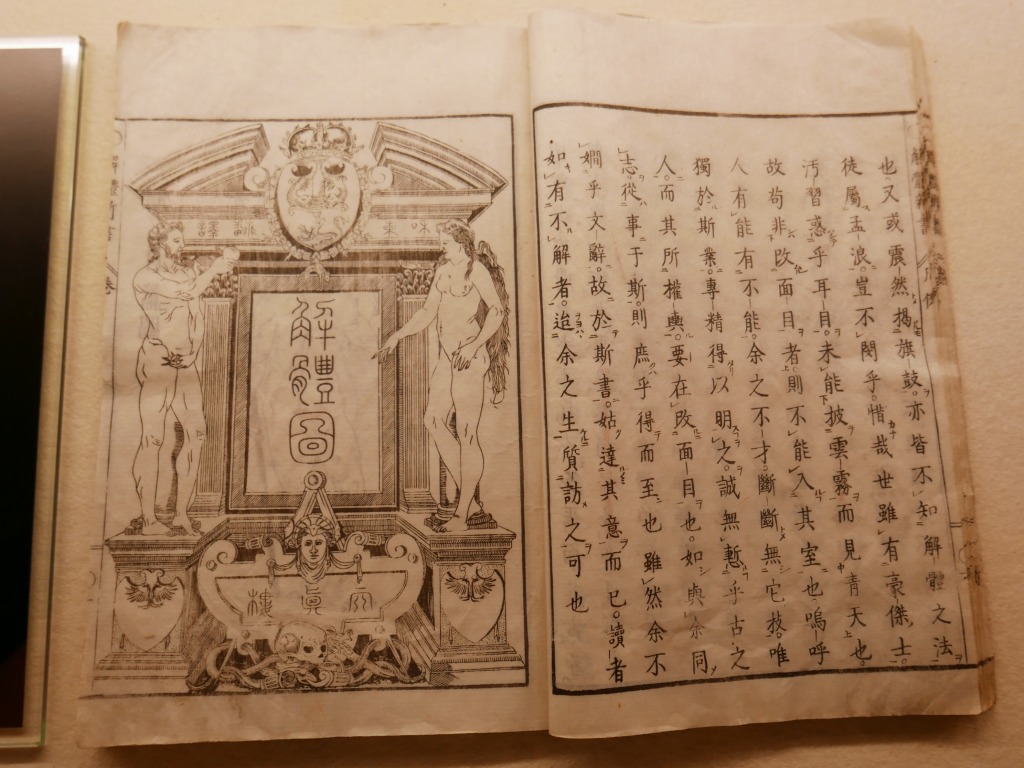 也又或震然揭旗鼓。亦皆不知解體之法
徒屬孟浪。豈不閔乎。惜哉世雖有豪傑士。
汚習惑乎耳目。未能披雲霧而見青天也。
故苟非改面目者。則不能入其室也嗚呼
人有能有不能。余之不才。斷斷無它技。唯
獨於斯業。專精得以明之。誠無慙乎古之
人。而其所權輿。要在改面目也。如與余同
志從事于斯。則庶乎得而至也雖然余不
嫺乎文辭。故於斯書。姑達其意而已。讀者
如有不解者。迨余之生質訪之可也
解體圖
天眞樓